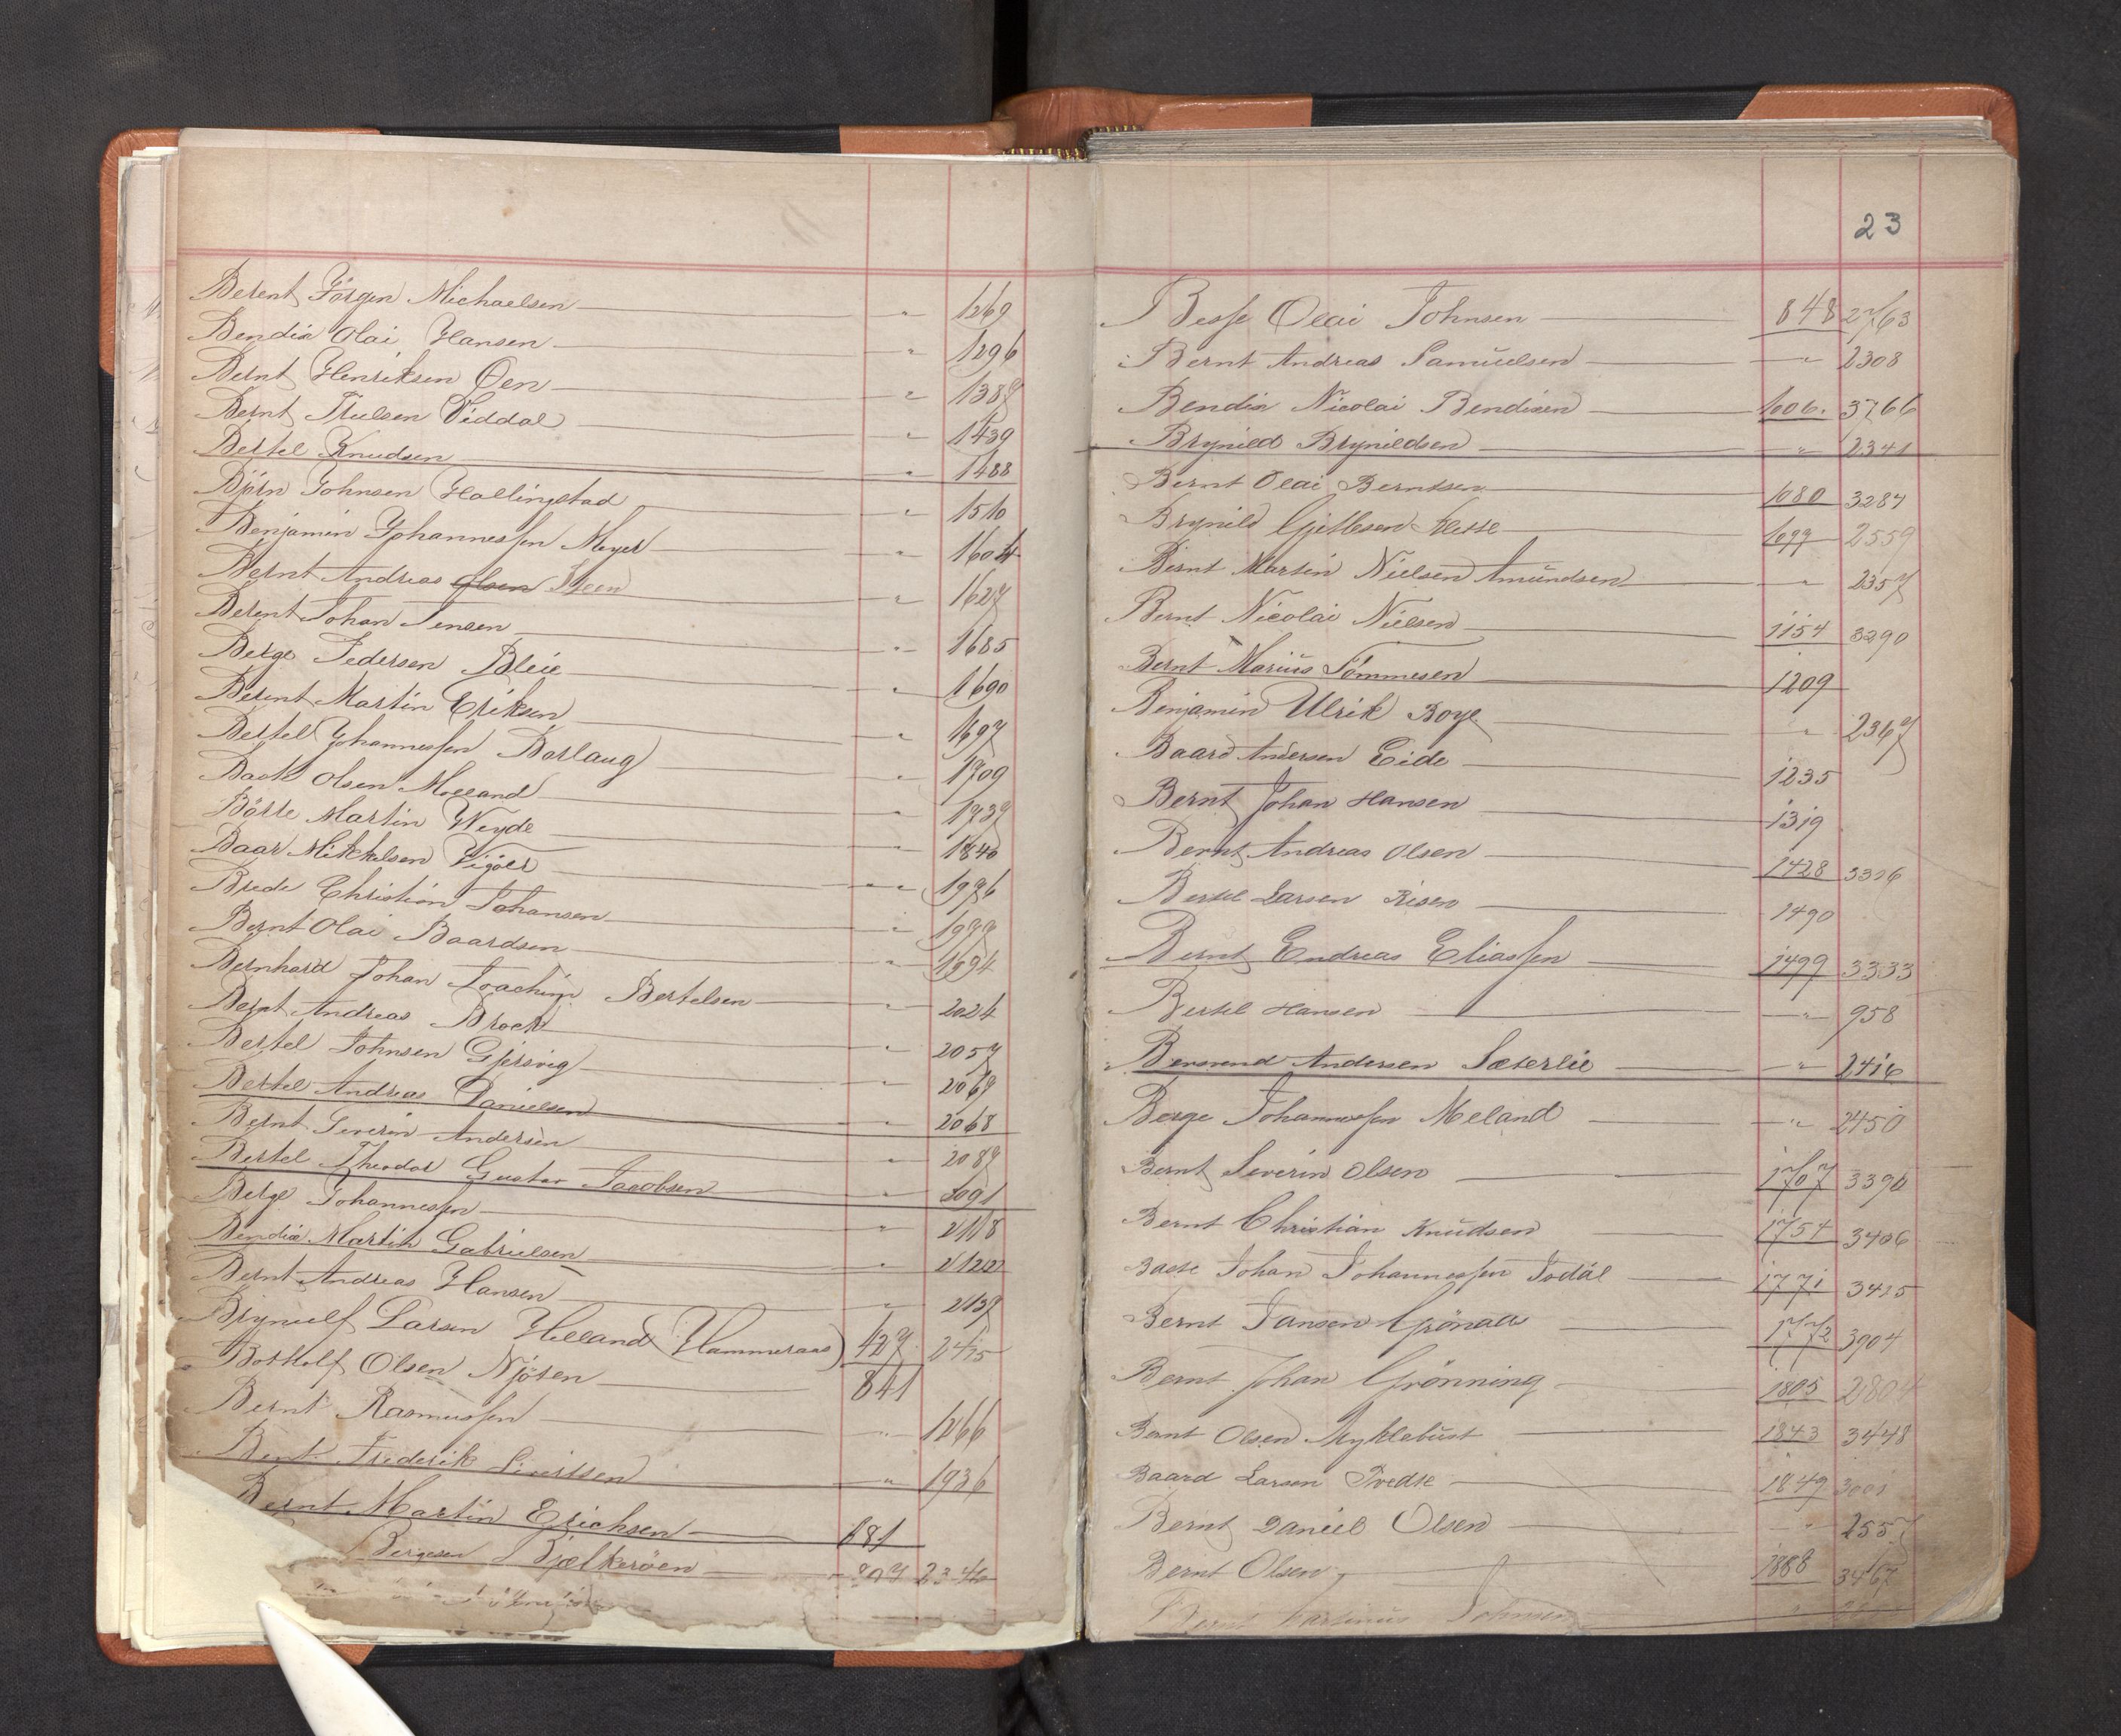 Berent Jörgen Michaelsen " 1269
Bendix Olai Hansen " 1296
Bernt Henriksen Öen " 1387
Bernt Trulsen Viddal " 1439
Bertel Knudsen " 1488
Björn Johnsen Hollingstad " 1510
Benjamin Johannessen Meyer " 1604
Bernt Andreas Olsen Steen " 1627
Berent Johan Jensen " 1685
Berge Pedersen Bleie " 1690
Berent Martin Eriksen " 1697
Bertel Johannessen Borlaug " 1709
Olsen Molland " 1737
Börre Martin Weyde " 1840
Baar Mikkelsen Vigöer " 1976
Brede Christian Johansen " 1977
Bernt Olai Baardsen " 1694
Bernhard Johan Joachim Bertelsen " 2024
Bernt Andreas Brock " 2057
Bertel Johnsen Gjersvig " 2067
Bertel Andreas Danielsen " 2068
Bernt Severin Andersen " 2087
Bertel Theodor Gustav Jacobsen " 2091
Berge Johannessen " 2118
Bendix Martin Gabrielsen " 2122
Bernt Andreas Hansen " 2137
Brynulf Larsen Helland (Hammeraas) 427 2415
Botholf Olsen Njöten 841
Bernt Rasmussen " 1266
Bent Frederik Sivertsen " 1936
Bernt Martin Erichsen 681
Bergesen Bjelkeröen 2346
23
Besse Olai Johnsen 848 2763
Bernt Andreas Samuelsen " 2308
Bendix Nicolai Bendixen 1606. 3766
Brynild Brynildsen " 2341
Bernt Olai Berntsen 1080 3284
Brynild Gjittlesen 1099 2559
Bernt Martin Nielsen Amundsen " 2357
Bernt Nicolai Nielsen 1154 3290
Bernt Marius Tömmesen 1209
Benjamin Ulrik Boye " 2367
Baard Andersen Eide 1235
Bernt Johan Hansen 1319
Bernt Andreas Olsen 1428 3326
Bertel Larsen Risen 1490
Bernt Endreas Eliassen 1499 3333
Bertel Hansen " 958
Andersen Sæterlie " 2416
Berge Johannessen Meland " 2450
Bernt Severin Olsen 1707 3390
Bernt Christian Knudsen 1754 3406
Johan Johannessen 1771 3425
Bernt Jansen 1772 3904
Bernt Johan Grönning 1805 2804
Bernt Olsen Myklebust 1843 3448
Baard Larsen Tvedte 1849 3001
Bernt Daniel Olsen " 2557
Bernt Olsen 1888 3467
Bernt Martinus Johnsen "